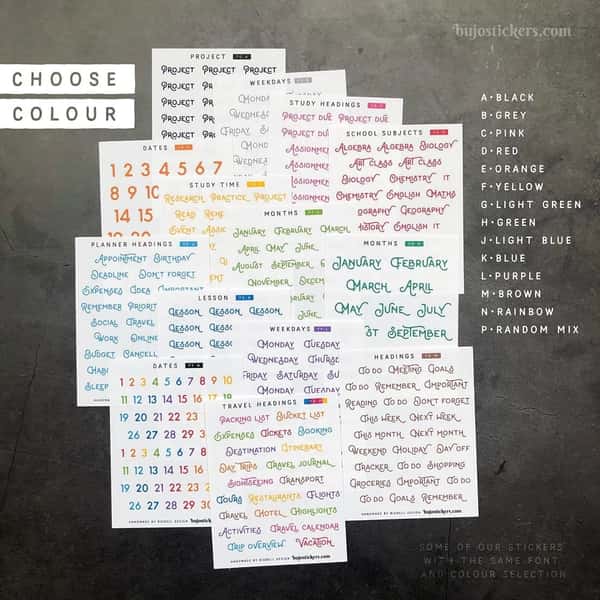 bujostickers.com
CHOOSE
COLOUR
A•BLACK
B•GREY
C•PINK
D•RED
E•ORANGE
F•YELLOW
G•LIGHT GREEN
H•GREEN
J•LIGHT BLUE
K•BLUE
L•PURPLE
M•BROWN
N•RAINBOW
P•RANDOM MIX
PROJECT
PROJECT PROJECT PROJECT
PROJECT PROJECT PROJECT
PROJECT PROJECT
PROJECT PROJECT
PROJECT
WEEKDAYS
MONDAY
STUDY HEADINGS
PROJECT DUE
PROJECT DUE
ASSIGNMENT
SCHOOL SUBJECTS
ALGEBRA ALGEBRA BIOLOGY
ART CLASS ART CLASS
BIOLOGY CHEMISTRY IT
CHEMISTRY ENGLISH MATHS
GEOGRAPHY
HISTORY ENGLISH IT
DATES
1 2 3 4 5 6 7
8 9 10
14 15
STUDY TIME
RESEARCH PRACTICE PROJECT
READ
EVENT
MONTHS
JANUARY FEBRUARY MARCH
APRIL MAY JUNE
AUGUST SEPTEMBER
MONTHS
JANUARY FEBRUARY
MARCH APRIL
MAY JUNE JULY
SEPTEMBER
PLANNER HEADINGS
APPOINTMENT BIRTHDAY
DEADLINE DON'T FORGET
EXPENSES IDEA
REMEMBER
SOCIAL TRAVEL
WORK ONLINE
BUDGET
SLEEP
LESSON
LESSON LESSON LESSON
LESSON LESSON LESSON
LESSON
WEEKDAYS
MONDAY TUESDAY
WEDNESDAY
FRIDAY SATURDAY
MONDAY TUESDAY
DATES
1 2 3 4 5 6 7 8 9 10
11 12 13 14 15 16 17 18
19 20 21 22 23
26 27 28 29
TRAVEL HEADINGS
PACKING LIST BUCKET LIST
EXPENSES TICKETS BOOKING
DESTINATION ITINERARY
DAY TRIPS TRAVEL JOURNAL
SIGHTSEEING TRANSPORT
TOURS RESTAURANTS FLIGHTS
TRAVEL HOTEL HIGHLIGHTS
ACTIVITIES TRAVEL CALENDAR
TRIP OVERVIEW VACATION
HANDMADE BY BIGDELL DESIGN bujostickers.com
HEADINGS
TO DO MEETING GOALS
TO DO REMEMBER IMPORTANT
READING TO DO DON'T FORGET
THIS WEEK NEXT WEEK
THIS MONTH NEXT MONTH
WEEKEND HOLIDAY DAY OFF
TRACKER TO DO SHOPPING
GROCERIES IMPORTANT TO DO
TO DO GOALS REMEMBER
bujostickers.com
SOME OF OUR STICKERS
WITH THE SAME FONT
AND COLOUR SELECTION